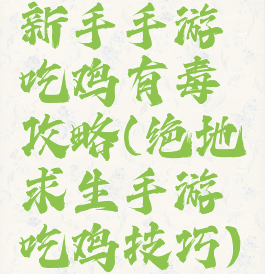 新手手游
吃鸡有毒
攻略(绝地
求生手游
吃鸡技巧)